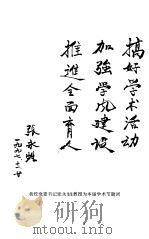 搞好学术活动
加强学风建设
推进全面育人
张永照
一九九七.十一.廿
我校党委书记张永照教授为本届学术节题词